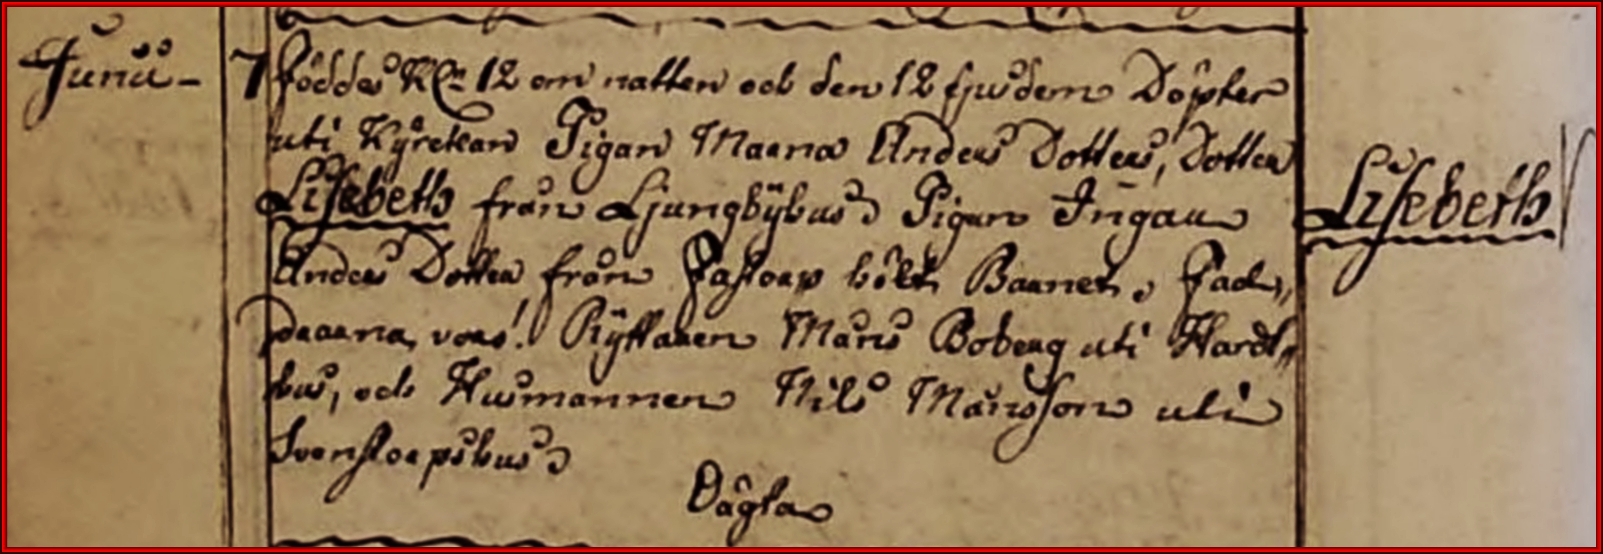 Junii – 7 föddes Kl: 12 om natten och den 12 ejusdem Döptes
uti Kyrckan Pigan Marna Anders Dotters, Dotter
Lisebeth från Ljungbyhus Pigan Ingar Lisebeth
Anders Dotter från Fastorp hölt Barnet, Fad„
drarna, voro! Ryttaren Måns Boberg uti Hardl„
hus, och Husmannen Nils Månsson uti
Svenstorpshus